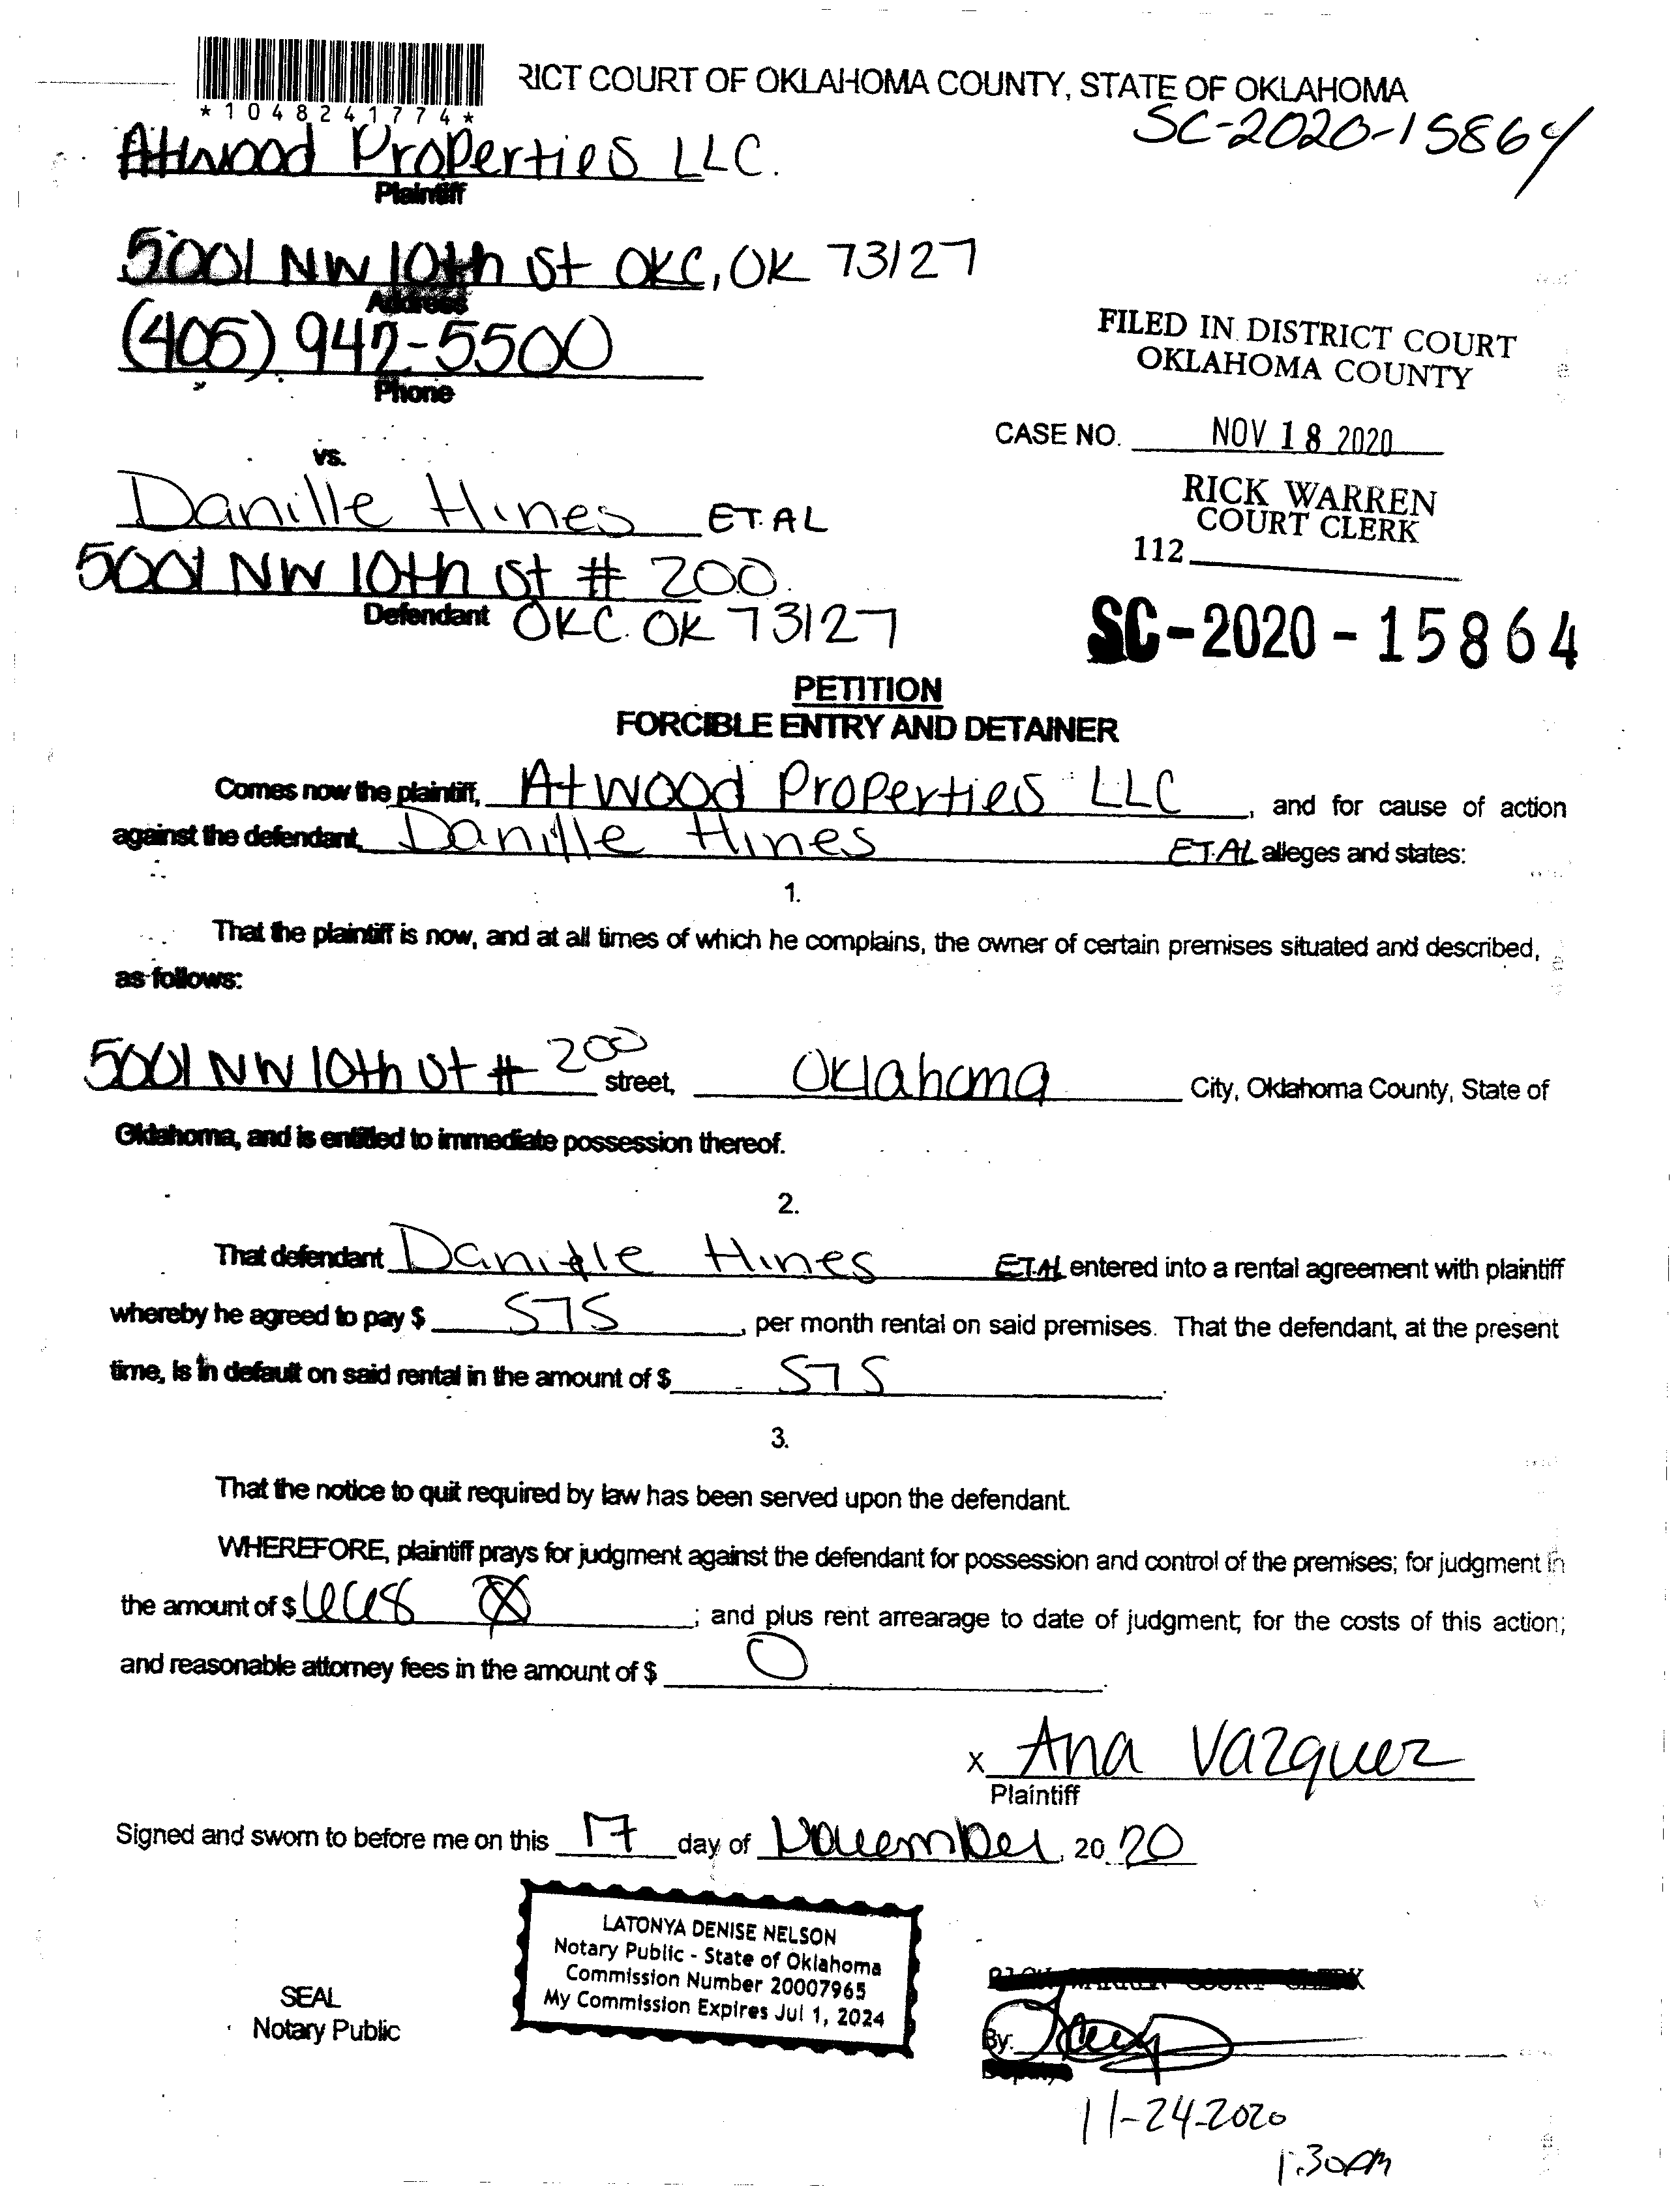 RICT COURT OF OKLAHOMA COUNTY, STATE OF OKLAHOMA
*1048241774*
SC-2020-15864
Atwood Properties LLC.
Plaintiff
5001 NW 10th St OKC, OK 73127
Address
(405) 942-5500
Phone
FILED IN DISTRICT COURT
OKLAHOMA COUNTY
CASE NO. NOV 18 2020
vs.
RICK WARREN
COURT CLERK
112
Danille Hines ET.AL
5001 NW 10th St # 200.
Defendant OKC. OK 73127
SC-2020-15864
PETITION
FORCIBLE ENTRY AND DETAINER
Comes now the plaintiff, Atwood Properties LLC, and for cause of action
against the defendant, Danille Hines ET.AL alleges and states:
1.
That the plaintiff is now, and at all times of which he complains, the owner of certain premises situated and described,
as follows:
5001 NW 10th St # 200 street, Oklahoma City, Oklahoma County, State of
Oklahoma, and is entitled to immediate possession thereof.
2.
That defendant Danille Hines ET.AL entered into a rental agreement with plaintiff
whereby he agreed to pay $ 575, per month rental on said premises. That the defendant, at the present
time, is in default on said rental in the amount of $ 575.
3.
That the notice to quit required by law has been served upon the defendant.
WHEREFORE, plaintiff prays for judgment against the defendant for possession and control of the premises; for judgment in
the amount of $ ; and plus rent arrearage to date of judgment; for the costs of this action;
and reasonable attorney fees in the amount of $ 0.
x Ana Vazquez
Plaintiff
Signed and sworn to before me on this 17 day of November, 20 20
LATONYA DENISE NELSON
Notary Public - State of Oklahoma
Commission Number 20007965
My Commission Expires Jul 1, 2024
SEAL
Notary Public
RICK WARREN COURT CLERK
By:
Deputy
11-24-2020
1:30PM